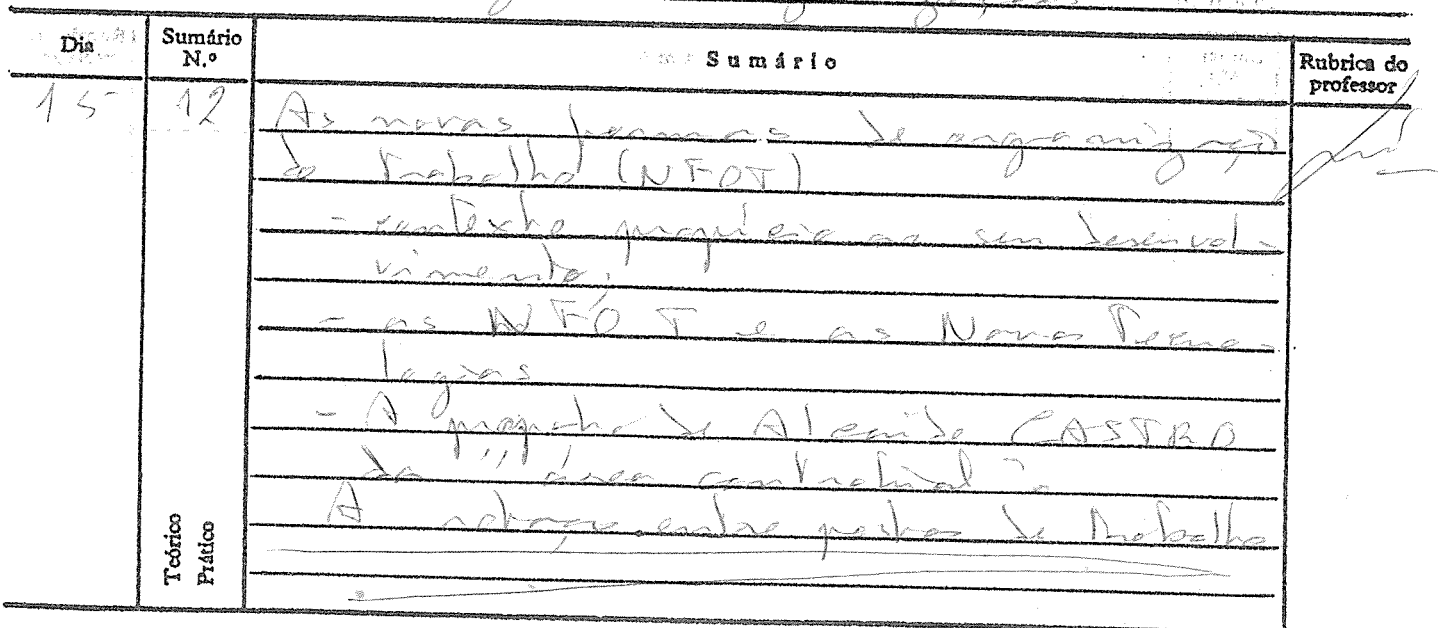 Dia
Sumário
N.º
Sumário
Rubrica do
professor
15
12
As novas formas de organização
do Trabalho (NFOT)
- contexto propício ao seu desenvol-
vimento;
- as NFOT e as Novas Tecno-
logias
- A proposta de Alcaide CASTRO
da "área contratual".
A rotação entre postos de Trabalho
Teórico
Prático